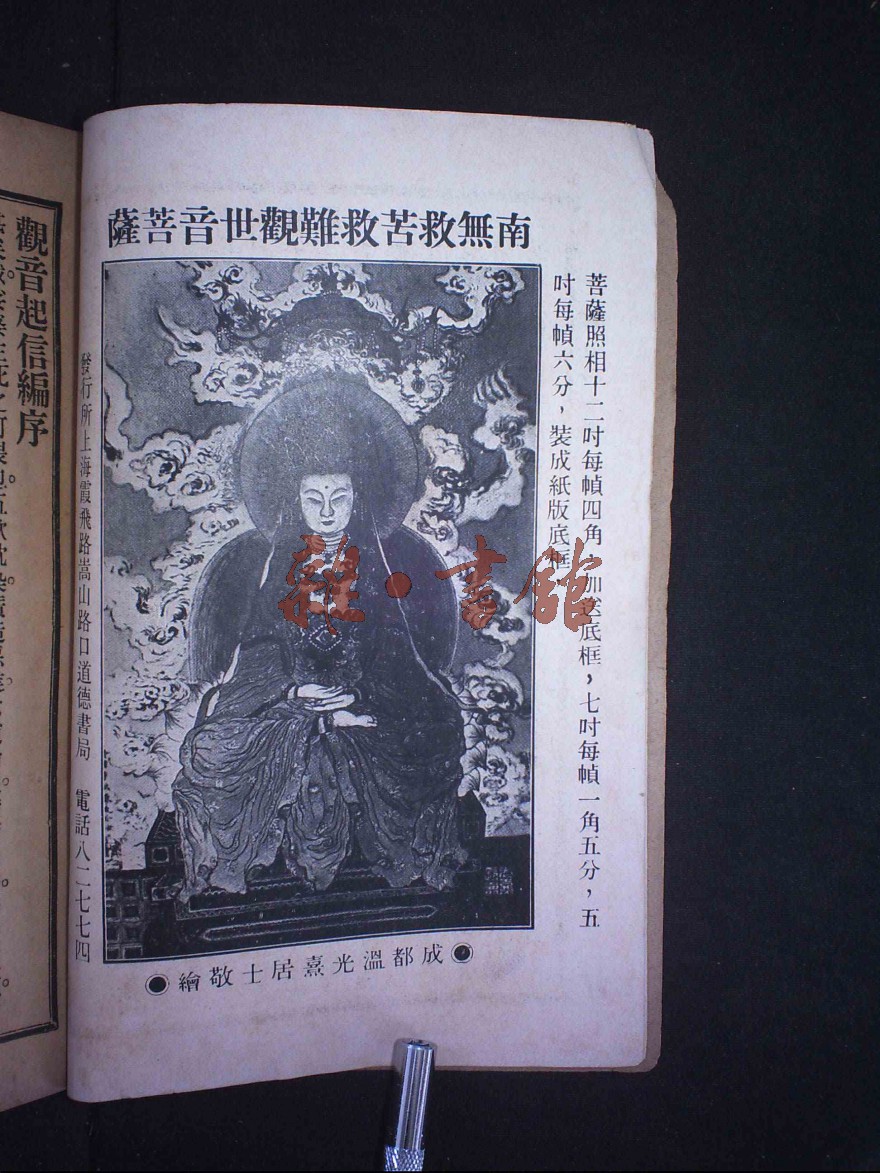 南無救苦救難觀世音菩薩
菩薩照相十二吋每幀四角，加送底框，七吋每幀一角五分，五
吋每幀六分，裝成紙版底框
成都溫光熹居士敬繪
發行所上海霞飛路嵩山路口道德書局 電話八二七七四
觀音起信編序
雜·書館